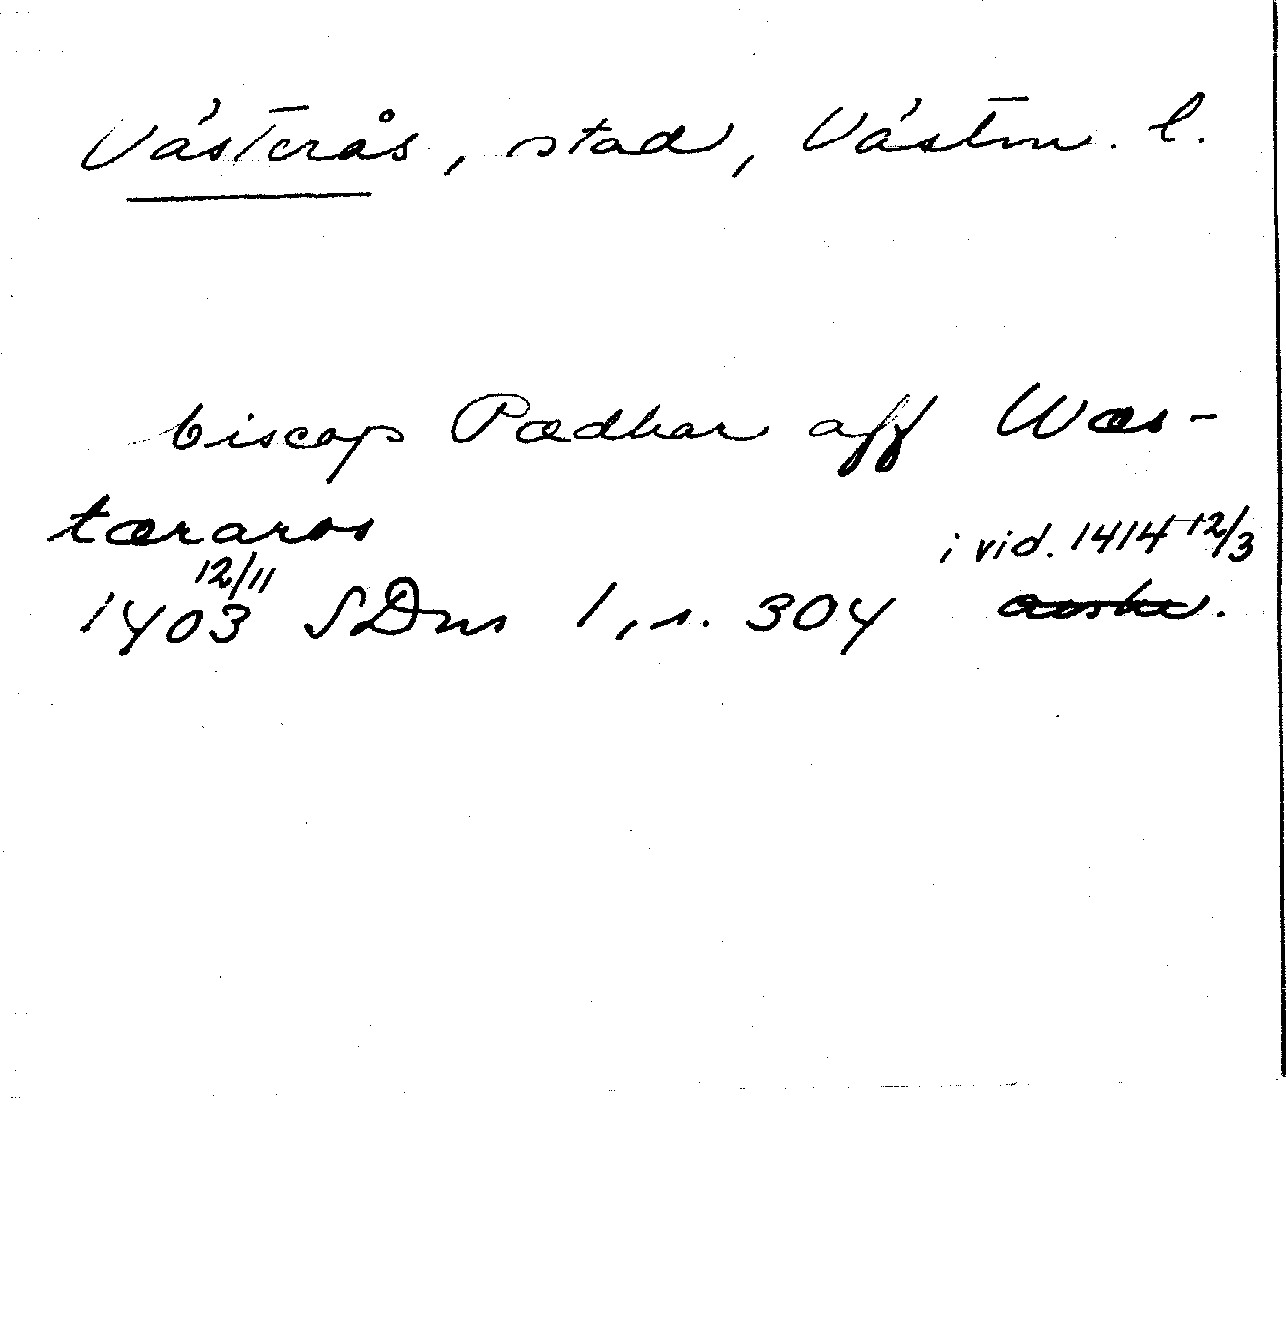 Västerås, stad, Västm. l.
biscop Pædhar aff Wæs-
tæraros
i vid. 1414 12/3
12/11
1403 SDns 1, s. 304